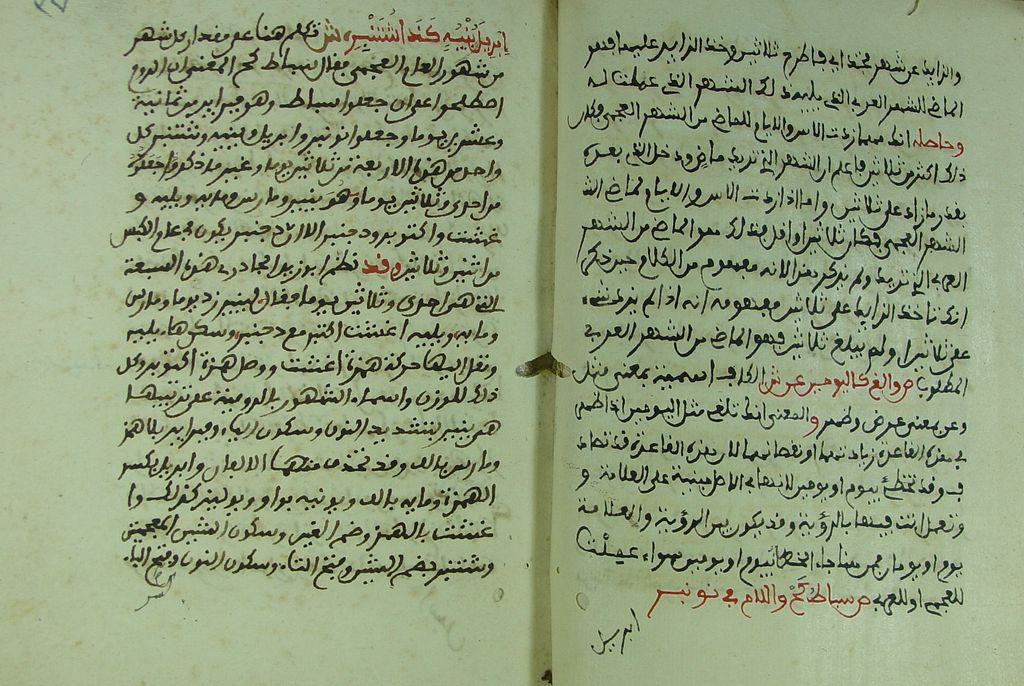 والزايد عن شهر فخذ اي فاطرح ثلاثين وخذ الزايد عليها فهو
الماضي من الشهر العربي الذي يليه وذلك الشهر الذي عملت له
وحاصله انك مهما زدت الاس والايام للماضي من الشهر العجمي وكان
ذلك اكثر من ثلاثين فاعلم ان الشهر الذي تريد ماض ودخل الذي بعده
بقدر ما زاد على ثلاثين واما اذا زدت الاس والايام لماضي
الشهر العجمي فكان ثلاثين او اقل فذلك هو الماضي من الشهر
العربي الذي تريد ولم يذكر هذا لانه مفهوم من الكلام
انك تاخذ الزايد على ثلاثين مفهومه انه اذا لم يزد شيء
على ثلاثين او لم يبلغ ثلاثين فهو الماضي من الشهر العربي
المطلوب ص والغ كاليومين عن ش الكاف اسمية بمعنى مثل
وعن بمعنى عرض وظهر والمعنى انك تلغي مثل اليومين اذا ظهر
في هذه القاعدة زيادتهما او نقصانهما لان هذه القاعدة
وقد تخطئ بيوم او يومين لانها في الاصل مبنية على العلامة و
وتعمل انت فيها بالرؤية وقد يكون بين الرؤية والعلامة
يوم او يومان فمن هنا جاء الخطا بيوم او يومين سواء عملت
للعجمي او للعربي ص سباط كح واللام في نونبر
ابريل
ابريل ينيه كذا شتنبر ش تكلم هنا على مقدار كل شهر
من شهور العام العجمي فقال سباط كح المعنى ان الروم
اصطلحوا على ان جعلوا سباط وهو فبراير من ثمانية
وعشرين يوما وجعلوا نونبر وابريل وينيه وشتنبر كل
واحد من هذه الاربعة من ثلاثين يوما وغير ما ذكر جعلوه
من احدى وثلاثين يوما وهو ينير ومارس ومايه ويليه و
غشت واكتوبر ودجنبر الا ان دجنبر يكون في عام الكبس
من اثنين وثلاثين وقد نظم ابو زيد الجادري هذه السبعة
التي هي احدى وثلاثين يوما فقال لينير زد يوما ومارس
ومايه ويليه اغشت اكتبر مع دجنبر وسكن ها يليه
ونقل اليها حركة همزة اغشت ووصل همزة اكتوبر وكل
ذلك للوزن واسماء الشهور بالرومية على ترتيبها
هي ينير بتشديد النون وسكون الياء وفبراير بلا همز
ومارس بالف وقد تحذف منهما الالفان وابريل بكسر
الهمزة ومايه بالف ويونيه بواو ويوليز كذلك وا
غشت بالهمز وضم الغين وسكون الشين المعجمتين
وشتنبر بضم الشين وفتح التاء وسكون النون وفتح الباء